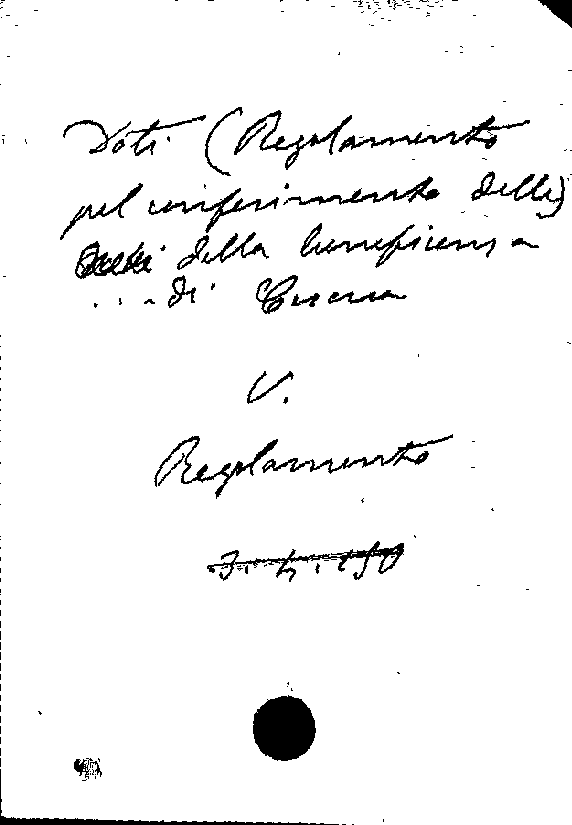 Doti (Regolamento
pel conferimento delle)
Doti della beneficenza
... di
V.
Regolamento